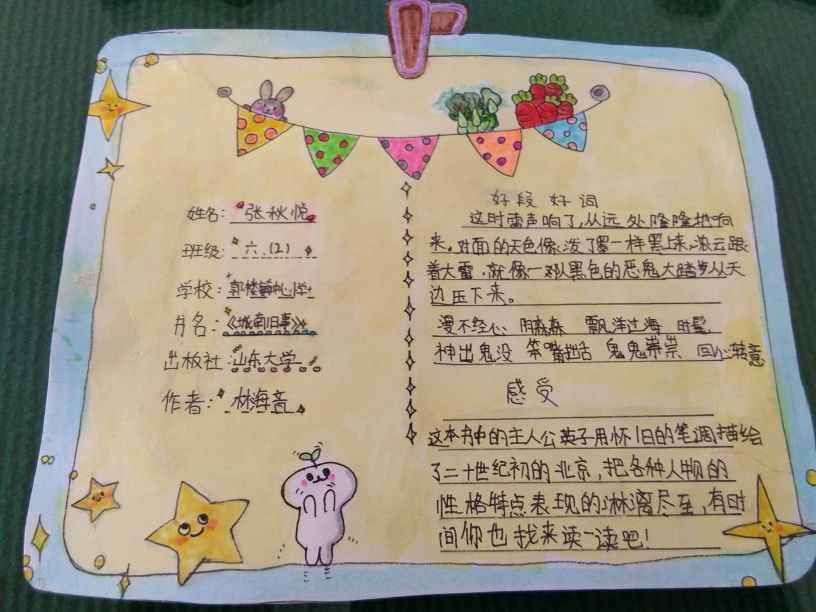 姓名：张秋悦
班级：六.(2)
学校：郭楼镇中心小学
书名：《城南旧事》
出版社：山东大学
作者：林海音
好段好词
这时雷声响了，从远处隆隆地响
来。对面的天色像泼了墨一样黑上来，浓云跟
着大雷，就像一队黑色的恶鬼大踏步从天
边压下来。
漫不经心 阴森森 飘洋过海 时髦
神出鬼没 笨嘴拙舌 鬼鬼祟祟 回心转意
感受
这本书中的主人公英子用怀旧的笔调描绘
了二十世纪初的北京，把各种人物的
性格特点表现的淋漓尽至，有时
间你也找来读一读吧！